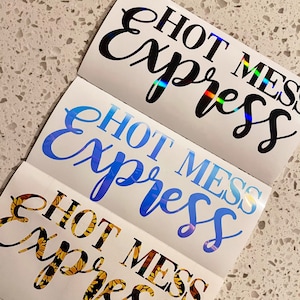 HOT MESS
Express
HOT MESS
Express
HOT MESS
Express